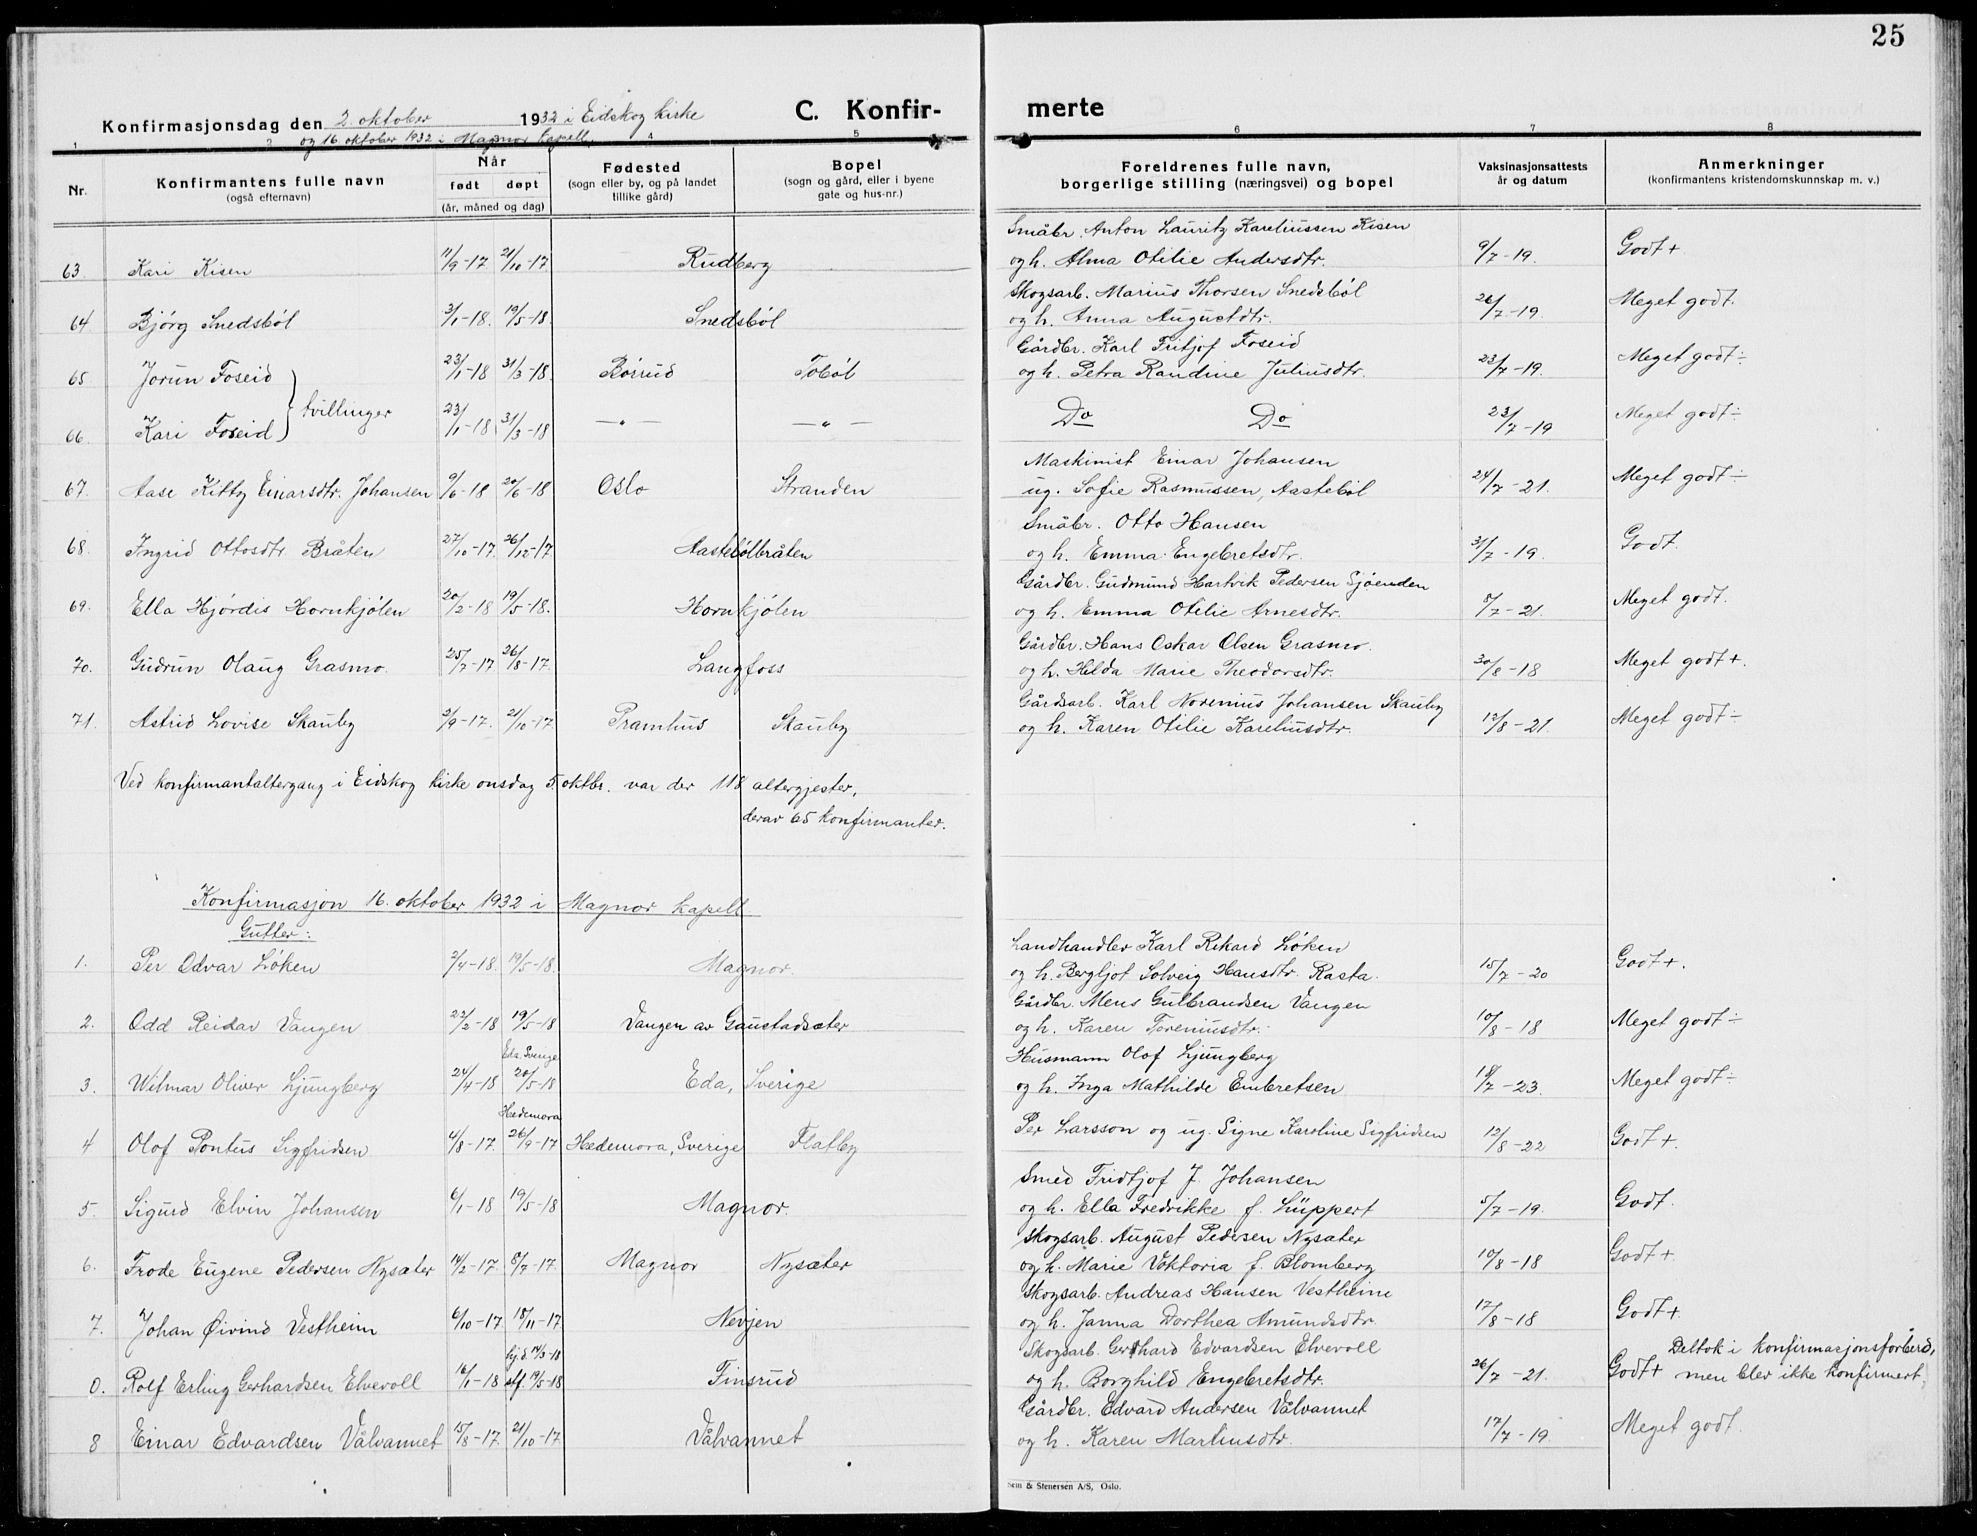 25
Konfirmasjonsdag den 2. oktober 1932 i Eidskog kirke C. Konfir- merte
og 16 oktober 1932 i Magnor kapell.
1 2 3 4 5 6 7 8
Nr. Konfirmantens fulle navn (også efternavn) Når født døpt (år, måned og dag) Fødested (sogn eller by, og på landet tillike gård) Bopel (sogn og gård, eller i byene gate og hus-nr.) Foreldrenes fulle navn, borgerlige stilling (næringsvei) og bopel Vaksinasjonsattests år og datum Anmerkninger (konfirmantens kristendomskunnskap m. v.)
Småbr. Anton Lauritz Kareliussen Kisen
63. Kari Kisen 11/9-17 21/10-17 Rudberg og h. Alma Otilie Andersdtr. 9/7-19. Godt +
Skogsarb. Marius Thorsen Snedsböl
64 Bjørg Snedsböl 3/1-18. 19/5-18. Snedsböl og h. Anna Augustdtr. 26/7-19. Meget godt.
Gårdbr. Karl Fritjof Foseid
65 Jorun Foseid 23/1-18 31/3-18. Børrud Toböl og h. Petra Randine Juliusdtr. 23/7-19. Meget godt ÷
tvillinger
66. Kari Foseid 23/1-18 31/3-18 — " — — " — Do Do 23/7-19 Meget godt ÷
Maskinist Einar Johansen
67. Aase Kitty Einarsdtr. Johansen 9/6-18 20/6-18 Oslo Stranden ug. Sofie Rasmussen, Aasteböl 24/7-21. Meget godt ÷
Småbr. Otto Hansen
68. Ingrid Ottosdtr. Bråten 27/10-17. 26/12-17 Aastebölbråten og h. Emma Engebretsdtr. 31/7-19. Godt.
Gårdbr. Gudmund Hartvik Pedersen Sjøenden
69. Ella Hjördis Hornkjölen 20/2-18 19/5-18. Hornkjölen og h. Emma Otilie Arnesdtr. 8/7-21. Meget godt.
Gårdbr. Hans Oskar Olsen Grasmo
70. Gudrun Olaug Grasmo. 25/7-17 26/8-17. Langfoss og h. Hilda Marie Theodorsdtr. 30/8-18 Meget godt +.
Gårdsarb. Karl Norenius Johansen Skauby
71. Astrid Lovise Skauby 2/9-17. 21/10-17 Pramhus Skauby og h. Karen Otilie Kareliusdtr. 12/8-21. Meget godt ÷
Ved konfirmantaltergang i Eidskog kirke onsdag 5 oktbr. var der 118 altergjester,
derav 65 konfirmanter.
Konfirmasjon 16. oktober 1932 i Magnor kapell
Gutter:
Landhandler Karl Rikard Löken
1. Per Odvar Löken 2/4-18. 19/5-18. Magnor. og h. Bergljot Solveig Hansdtr. Rasta. 15/7-20 Godt +.
Gårdbr. Mens Gulbrandsen Vangen
2. Odd Reidar Vangen 22/2-18 19/5-18 Vangen av Gaustadsæter og h. Karen Toreniusdtr. 10/8-18 Meget godt ÷
Eda, Sverige
Husmann Olof Ljungberg
3. Wilmar Oliver Ljungberg 24/4-18 20/5-18 Eda, Sverige og h. Inga Mathilde Embretsen 18/7-23. Meget godt ÷
Hedemora
4 Olof Pontus Sigfridsen 4/8-17. 26/9-17 Hedemora, Sverige Flatby Per Larsson og ug. Signe Karoline Sigfridsen 12/8-22 Godt +.
Smed Fridtjof J. Johansen
5. Sigurd Elvin Johansen 6/1-18 19/5-18 Magnor. og h. Ella Fredrikke f. Lüppert 5/7-19. Godt.
Skogsarb. August Pedersen Nysæter
6. Frode Eugene Pedersen Nysæter 14/2-17. 8/7-17. Magnor Nysæter og h. Marie Viktoria f. Blomberg 10/8-18 Godt +
Skogsarb. Andreas Hansen Vestheim
7. Johan Øivind Vestheim 6/10-17 18/11-17 Nevjen og h. Janna Dorthea Amundsdtr. 17/8-18 Godt +
hj.d. 14/3-18 Skogsarb. Gerhard Edvardsen Elvevoll Deltok i konfirmasjonsforbered,
0. Rolf Erling Gerhardsen Elvevoll 16/1-18 stf. 19/5-18 Finsrud og h. Borghild Engebretsdtr. 26/7-21. Godt + men blev ikke konfirmert.
Gårdbr. Edvard Andersen Vålvannet
8 Einar Edvardsen Vålvannet 15/8-17. 21/10-17 Vålvannet og h. Karen Martinsdtr. 17/7-19. Meget godt.
Sem & Stenersen A/S, Oslo.